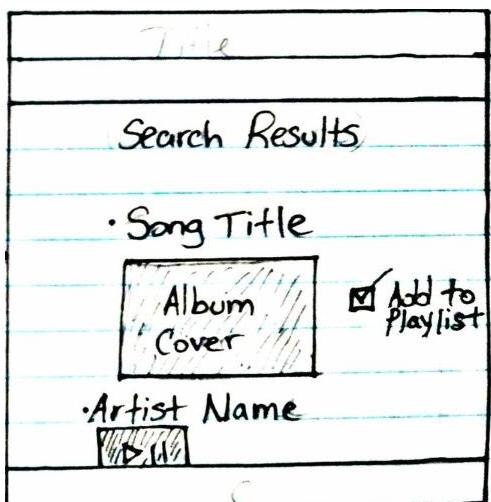 Title
Search Results
· Song Title
Album
Cover
Add to
Playlist
·Artist Name